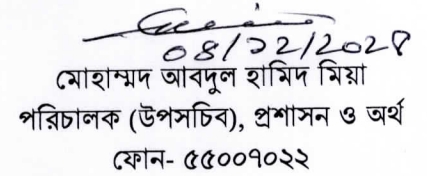 ০৪/১২/২০২৪
মোহাম্মদ আবদুল হামিদ মিয়া
পরিচালক (উপসচিব), প্রশাসন ও অর্থ
ফোন- ৫৫০০৭০২২